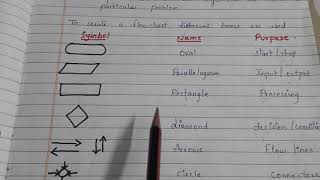 particular problem.
To create a flowchart, different boxes are used
Symbol Name Purpose
Oval start/stop
Parallelogram Input/output
Rectangle Processing
diamond decision/
Arrows Flow lines
circle Connectors